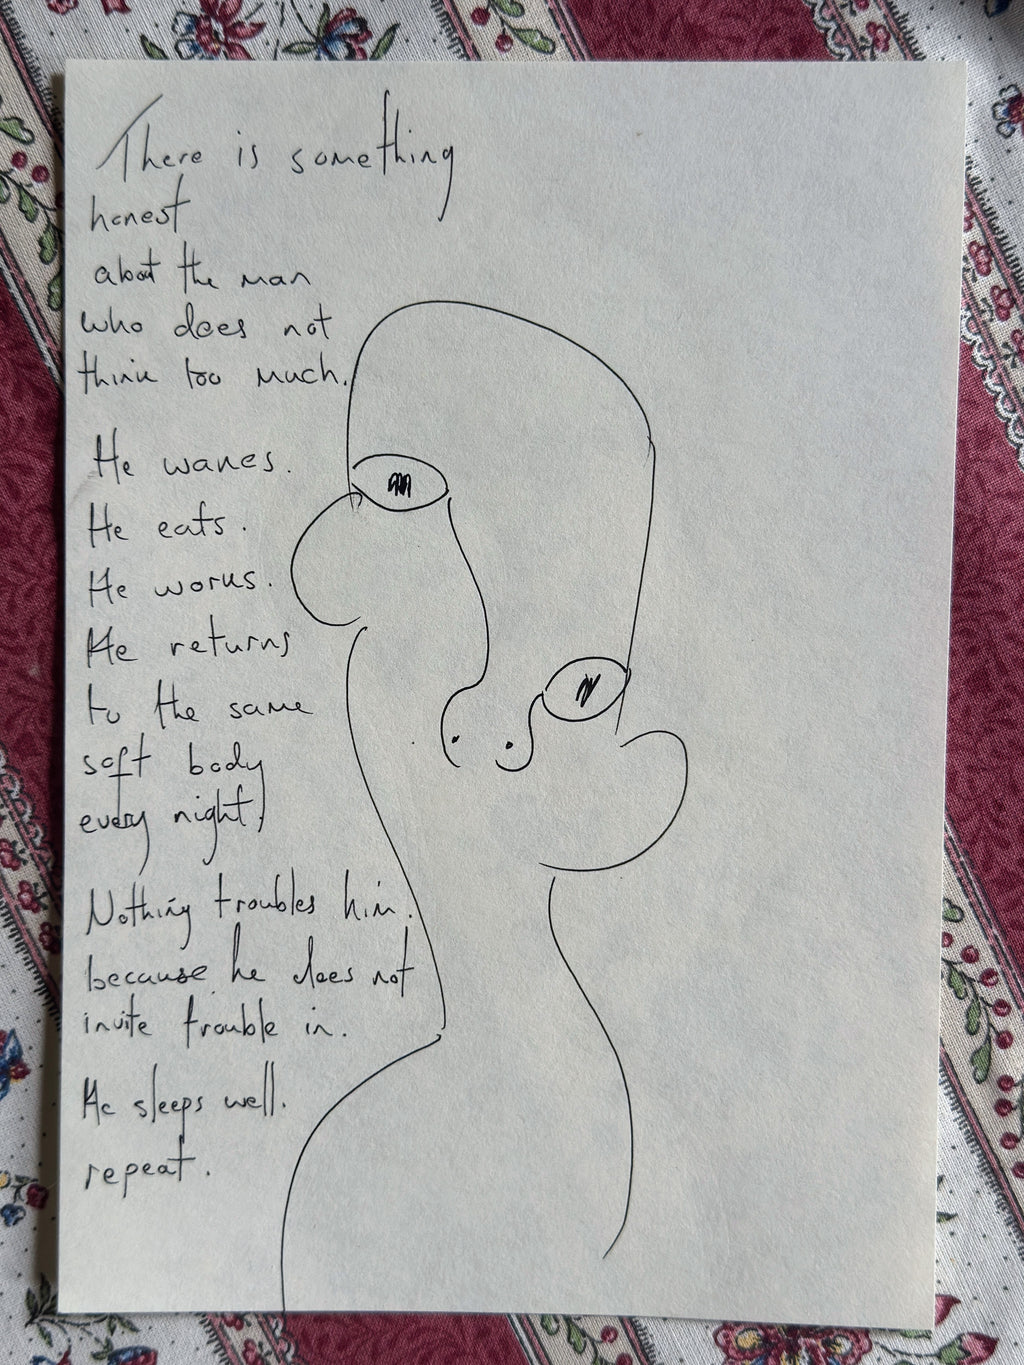 There is something
honest
about the man
who does not
think too much.
He wakes.
He eats.
He works.
He returns
to the same
soft body
every night.
Nothing troubles him.
because he does not
invite trouble in.
He sleeps well.
repeat.